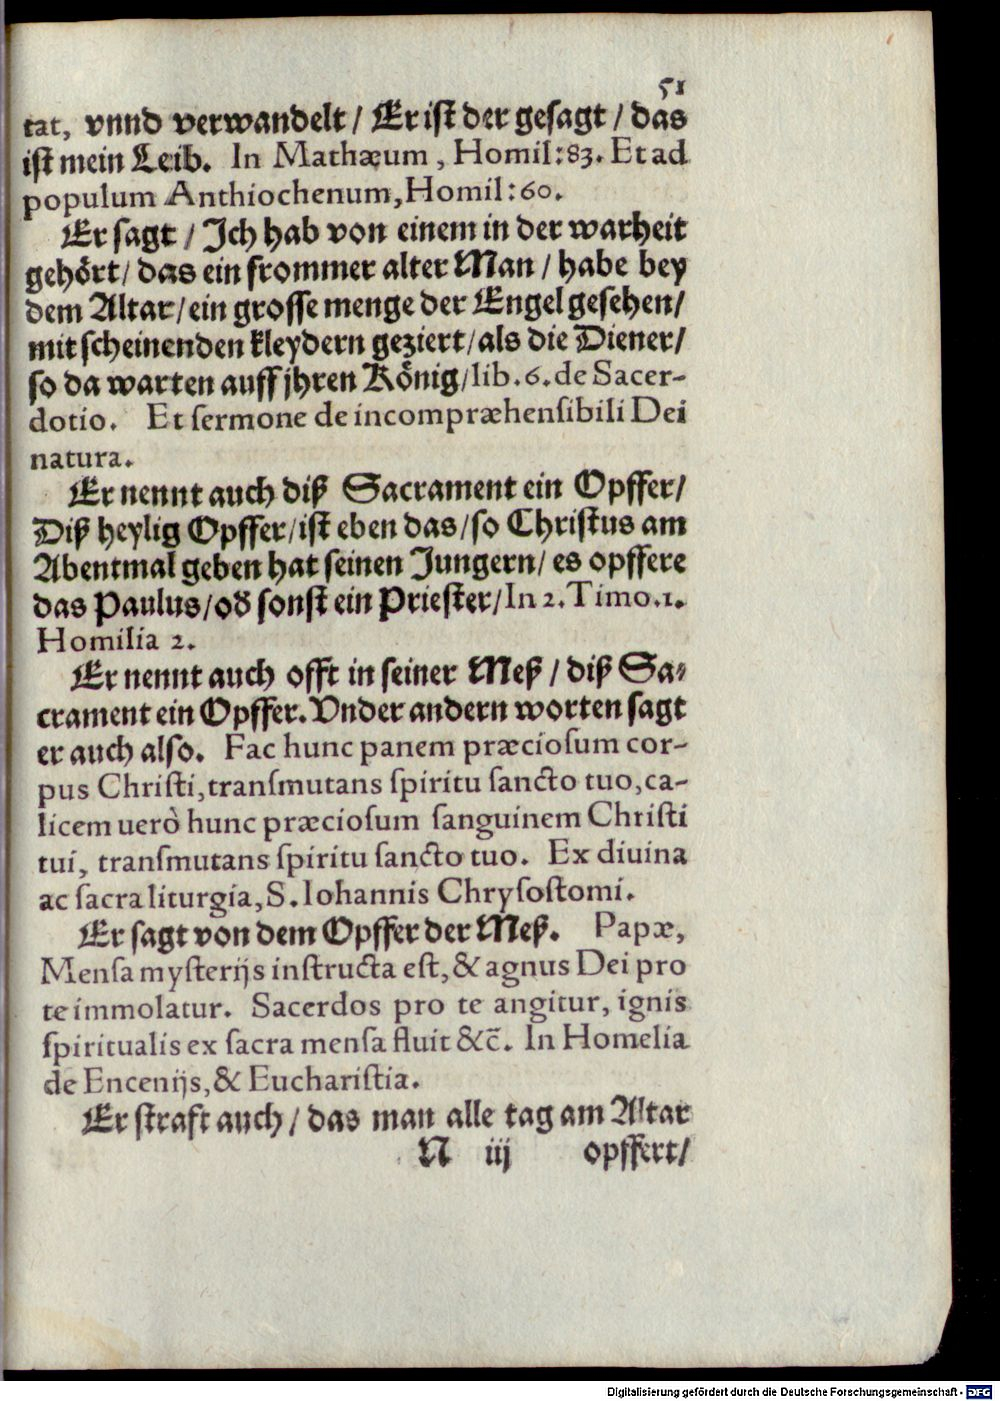 51
tat, vnnd verwandelt / Er ist der gesagt / das
ist mein Leib. In Mathæum, Homil: 83. Et ad
populum Anthiochenum, Homil: 60.
Er sagt / Ich hab von einem in der warheit
gehört / das ein frommer alter Man / habe bey
dem Altar / ein grosse menge der Engel gesehen /
mit scheinenden kleydern geziert / als die Diener /
so da warten auff jhren König / lib. 6. de Sacer-
dotio. Et sermone de incompræhensibili Dei
natura.
Er nennt auch diß Sacrament ein Opffer /
Diß heylig Opffer / ist eben das / so Christus am
Abentmal geben hat seinen Jungern / es opffere
das Paulus / oð sonst ein Priester / In 2. Timo. 1.
Homilia 2.
Er nennt auch offt in seiner Meß / diß Sa-
crament ein Opffer. Vnder andern worten sagt
er auch also. Fac hunc panem præciosum cor-
pus Christi, transmutans spiritu sancto tuo, ca-
licem uerò hunc præciosum sanguinem Christi
tui, transmutans spiritu sancto tuo. Ex diuina
ac sacra liturgia, S. Iohannis Chrysostomi.
Er sagt von dem Opffer der Meß. Papæ,
Mensa mysterijs instructa est, & agnus Dei pro
te immolatur. Sacerdos pro te angitur, ignis
spiritualis ex sacra mensa fluit &c̄. In Homelia
de Encenijs, & Eucharistia.
Er straft auch / das man alle tag am Altar
N iij opffert /
Digitalisierung gefördert durch die Deutsche Forschungsgemeinschaft - DFG